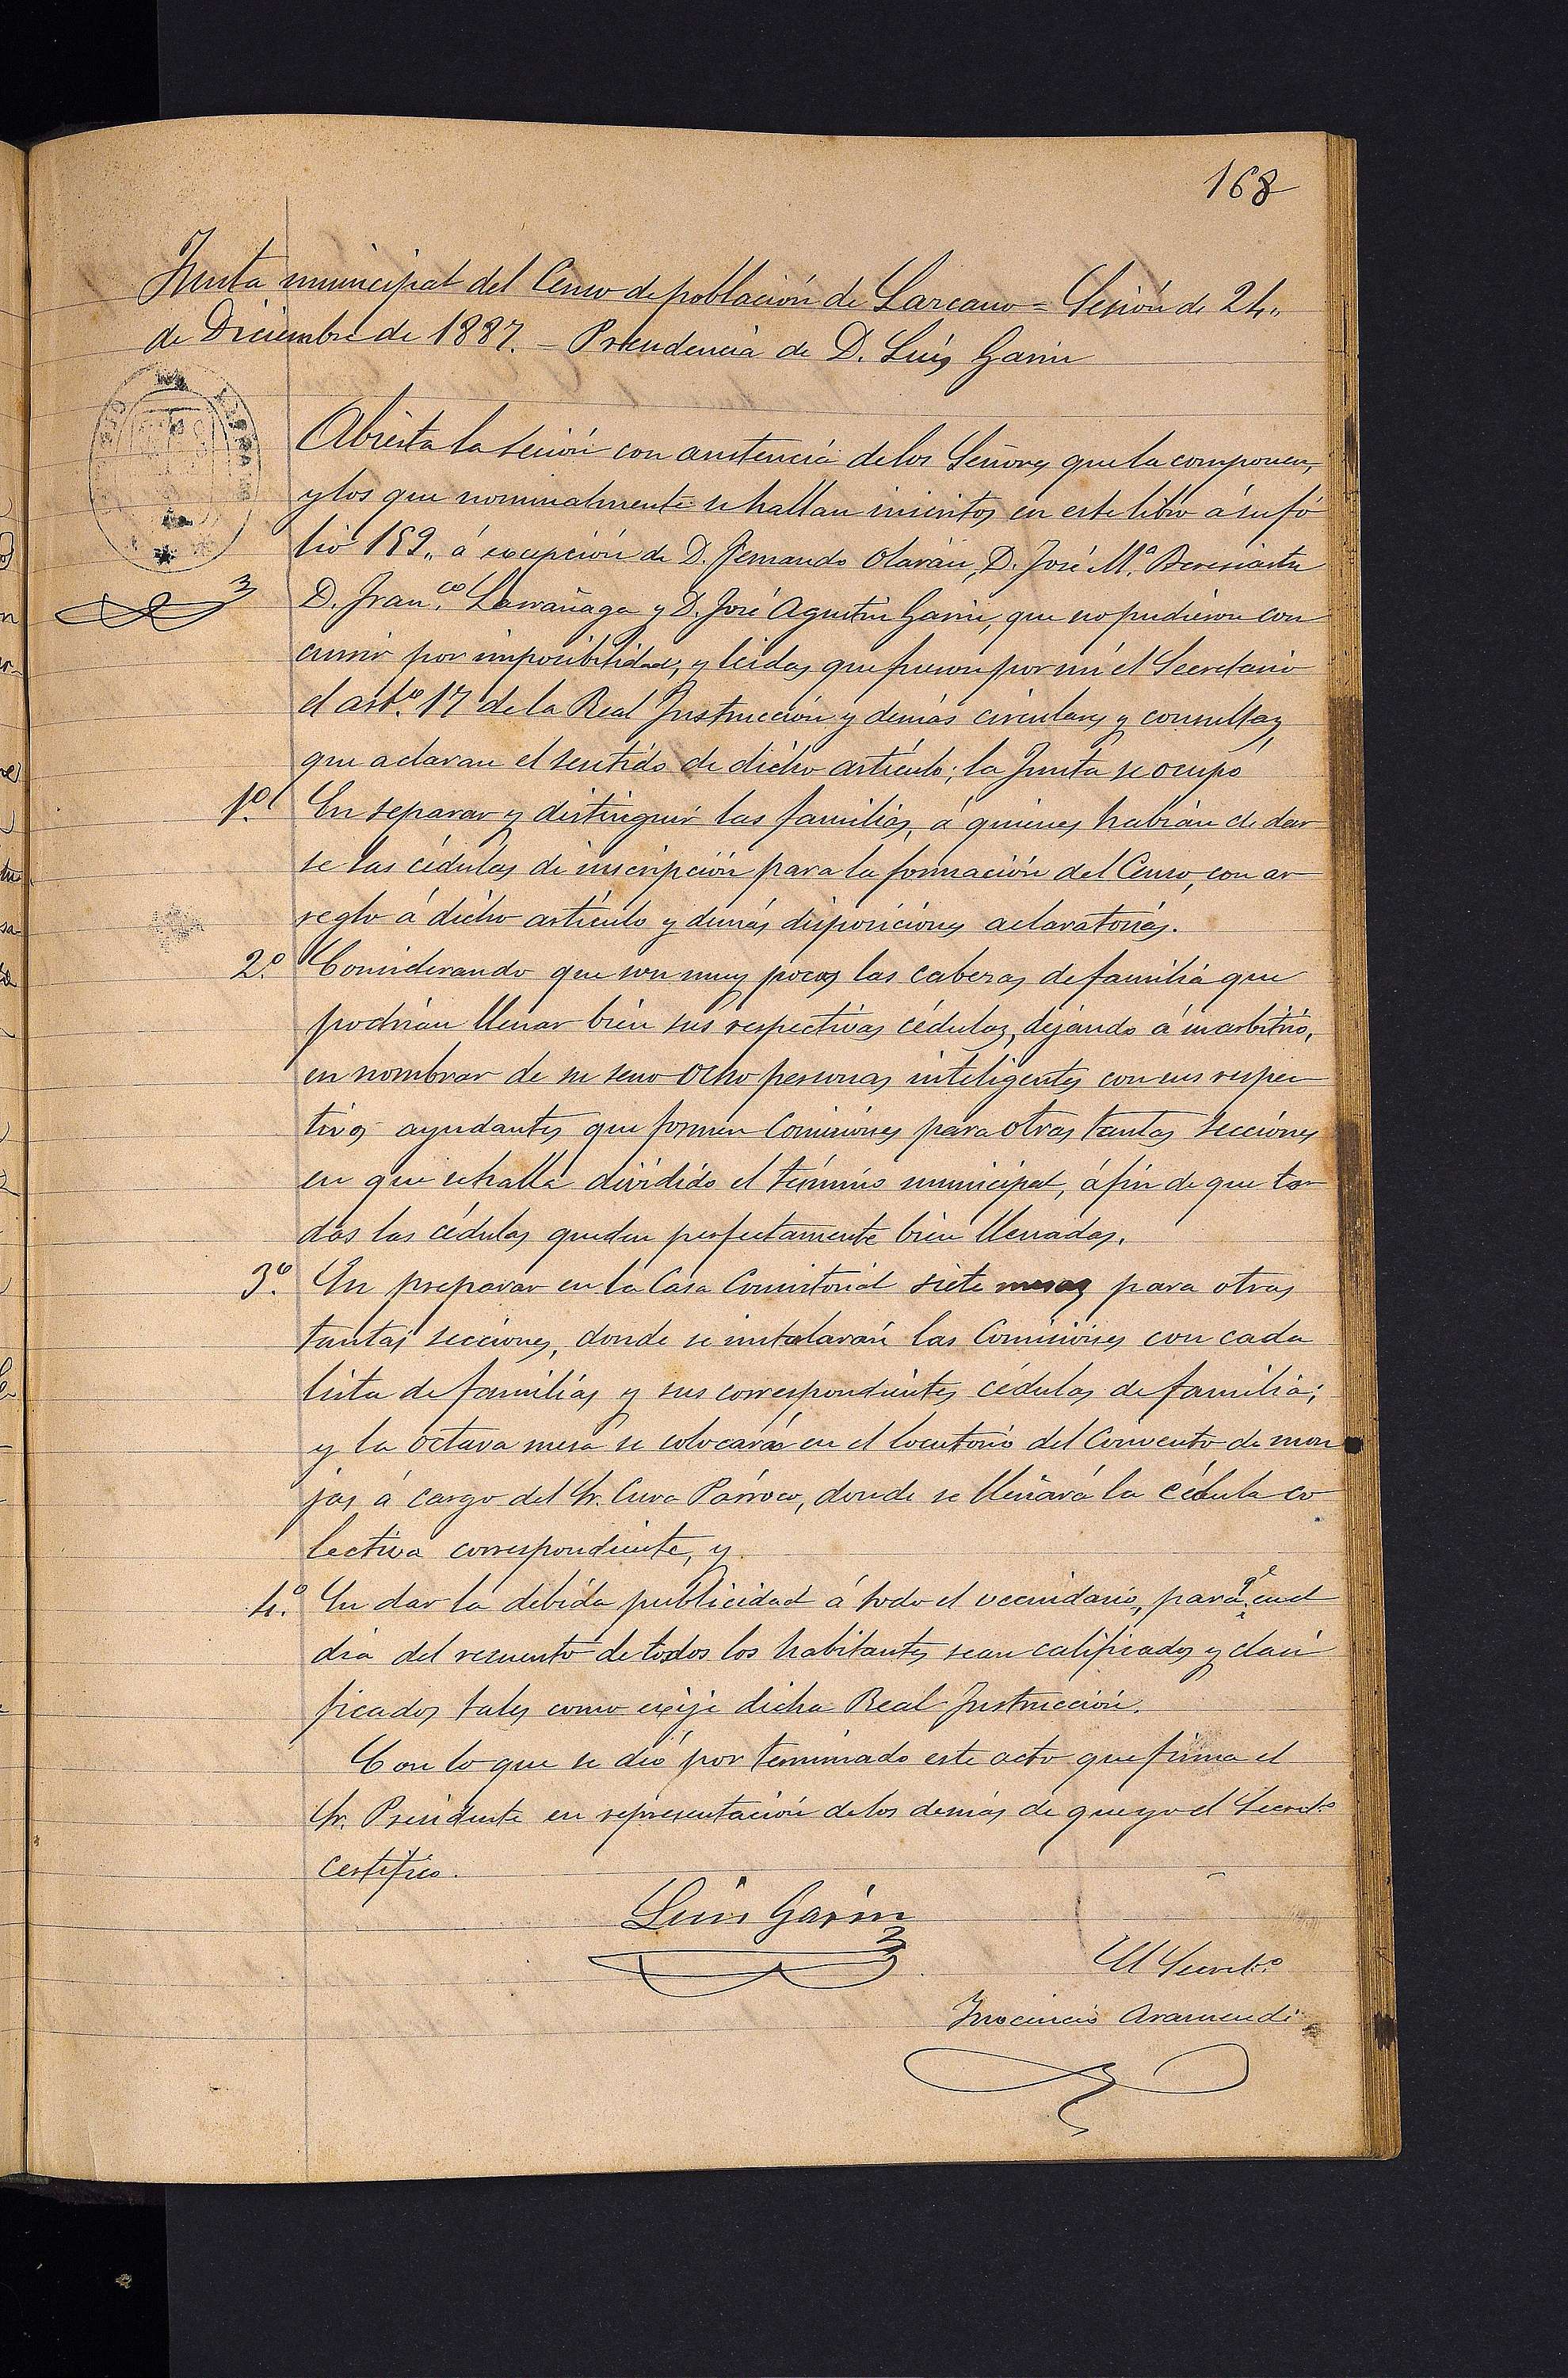 168
Junta municipal del Censo de población de Lazcano = Sesión de 24„
de Diciembre de 1887. – Presidencia de D. Luís Garin
Abierta la sesión con asistencia de los Señores que la componen,
y los que nominalmente se hallan inscritos en este libro á su fó
lio 159„ á excepción de D. Fernando Olaran, D. José M.ª Beresiartu
D. Fran.co Larrañaga y D. José Agustin Garin, que no pudieron con
currir por imposibilidad, y leidas que fueron por mí el Secretario
el art.º 17 de la Real Instrucción y demás circulares y consultas
que aclaran el sentido de dicho artículo; la Junta se ocupó
1.º En separar y distinguir las familias, á quienes habían de dar
se las cédulas de inscripción para la formación del Censo, con ar
reglo á dicho artículo y demás disposiciones aclaratorias.
2.º Considerando que son muy pocos las cabezas de familia que
podrían llenar bien sus respectivas cédulas, dejando á su arbitrio,
en nombrar de su seno ocho personas inteligentes con sus respec
tivos ayudantes que formen Comisiones para otras tantas secciones
en que se halla dividido el término municipal, á fin de que to
das las cédulas queden perfectamente bien llenadas.
3.º En preparar en la Casa Consistorial siete mesas para otras
tantas secciones, donde se instalarán las Comisiones con cada
lista de familias y sus correspondientes cédulas de familia;
y la octava mesa se colocará en el locutorio del Convento de mon
jas á cargo del Sr. Cura Párroco, donde se llenará la cédula co
lectiva correspondiente, y
4.º En dar la debida publicidad á todo el vecindario, para qe en el
día del recuento de todos los habitantes sean calificados y clasi
ficados tales como exije dicha Real Instrucción.
Con lo que se dió por terminado este acto que firma el
Sr. Presidente en representación de los demás de que yo el Secret.º
certifico.
Luis Garin
El Secret.º
Inocencio Aramendi